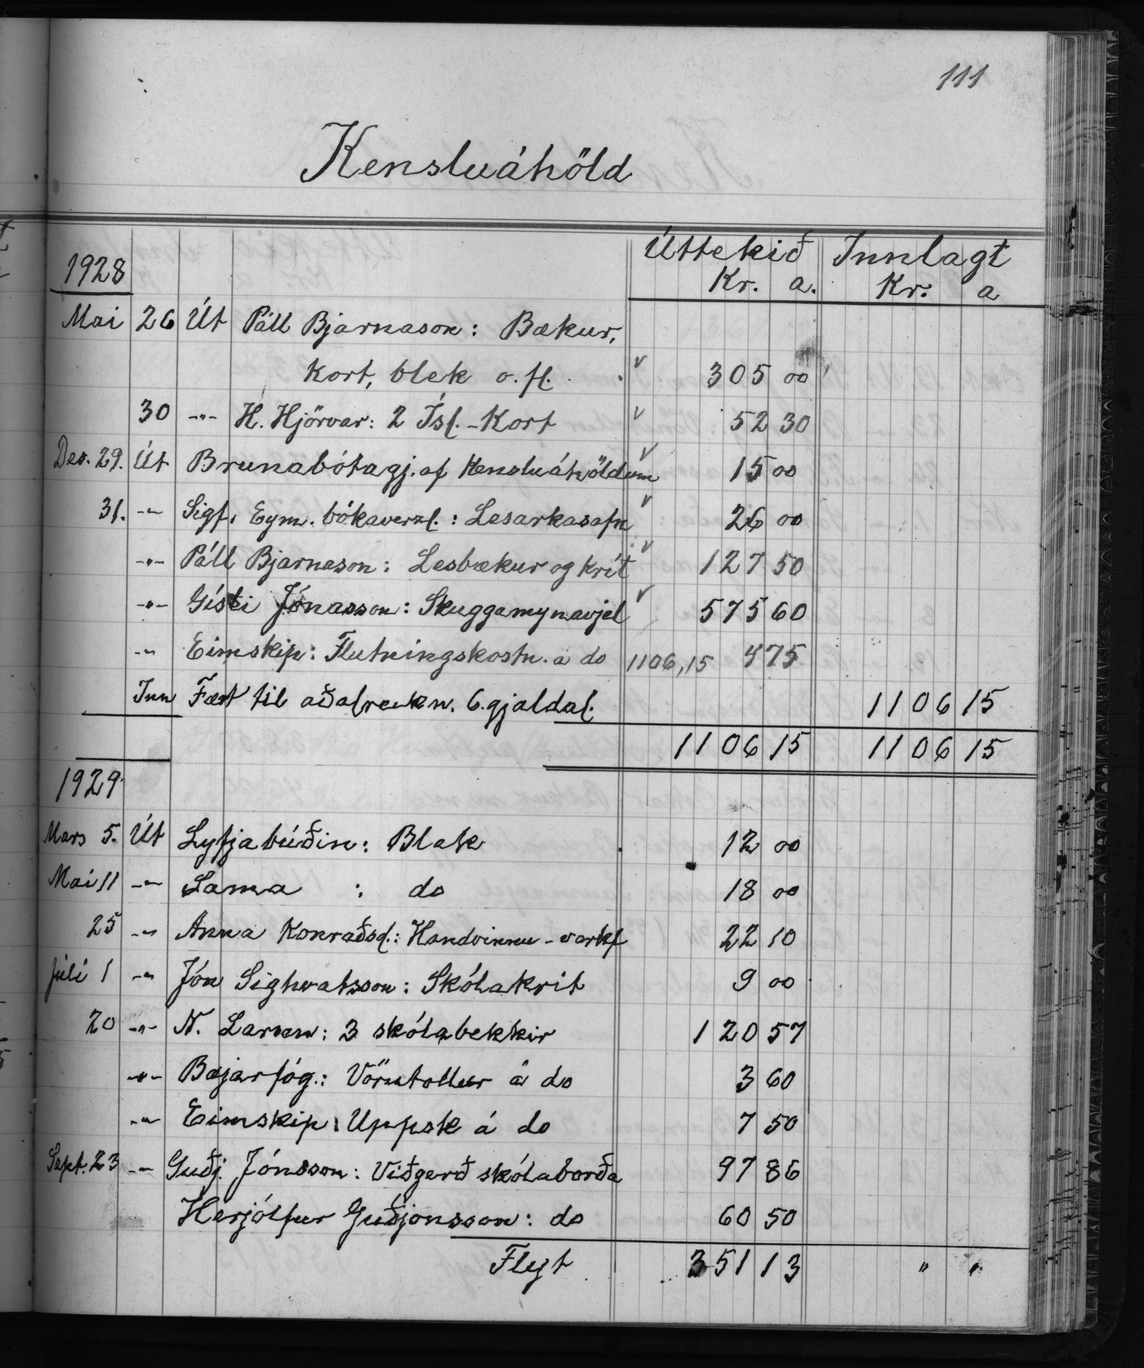 111
Kensluáhöld
Úttekið Innlagt
1928 Kr. a. Kr. a
Mai 26 Út Páll Bjarnason: Bækur,
Kort, blek o. fl. 305 00
30 -"- H. Hjörvar: 2 Ísl.-Kort 52 30
Des. 29. Út Brunabótagj. af Kensluáhöldum 15 00
31. -"- Sigf. Eym. bókaverzl.: Lesarkasafn 26 00
-"- Páll Bjarnason: Lesbækur og krít 127 50
-"- Gísli Jónasson: Skuggamynavjel 575 60
-"- Eimskip: Flutningskostn. á do 1106,15 4 75
Inn Fært til aðalreikn. 6. gjaldal. 1106 15
1106 15 1106 15
1929
Mars 5. Út Lyfjabúðin: Blek 12 00
Mai 11 -"- Sama : do 18 00
25 -"- Anna Konraðsd.: Handvinnu-verkf 22 10
Júlí 1 -"- Jón Sighvatsson: Skólakrit 9 00
20 -"- N. Larsen: 3 skólabekkir 120 57
-"- Bæjarfóg.: Vörutollur á do 3 60
-"- Eimskip: Uppsk á do 7 50
Sept. 23 -"- Guðj. Jónsson: Viðgerð skólaborða 97 86
Herjólfur Guðjonsson: do 60 50
Flyt 351 13 " "